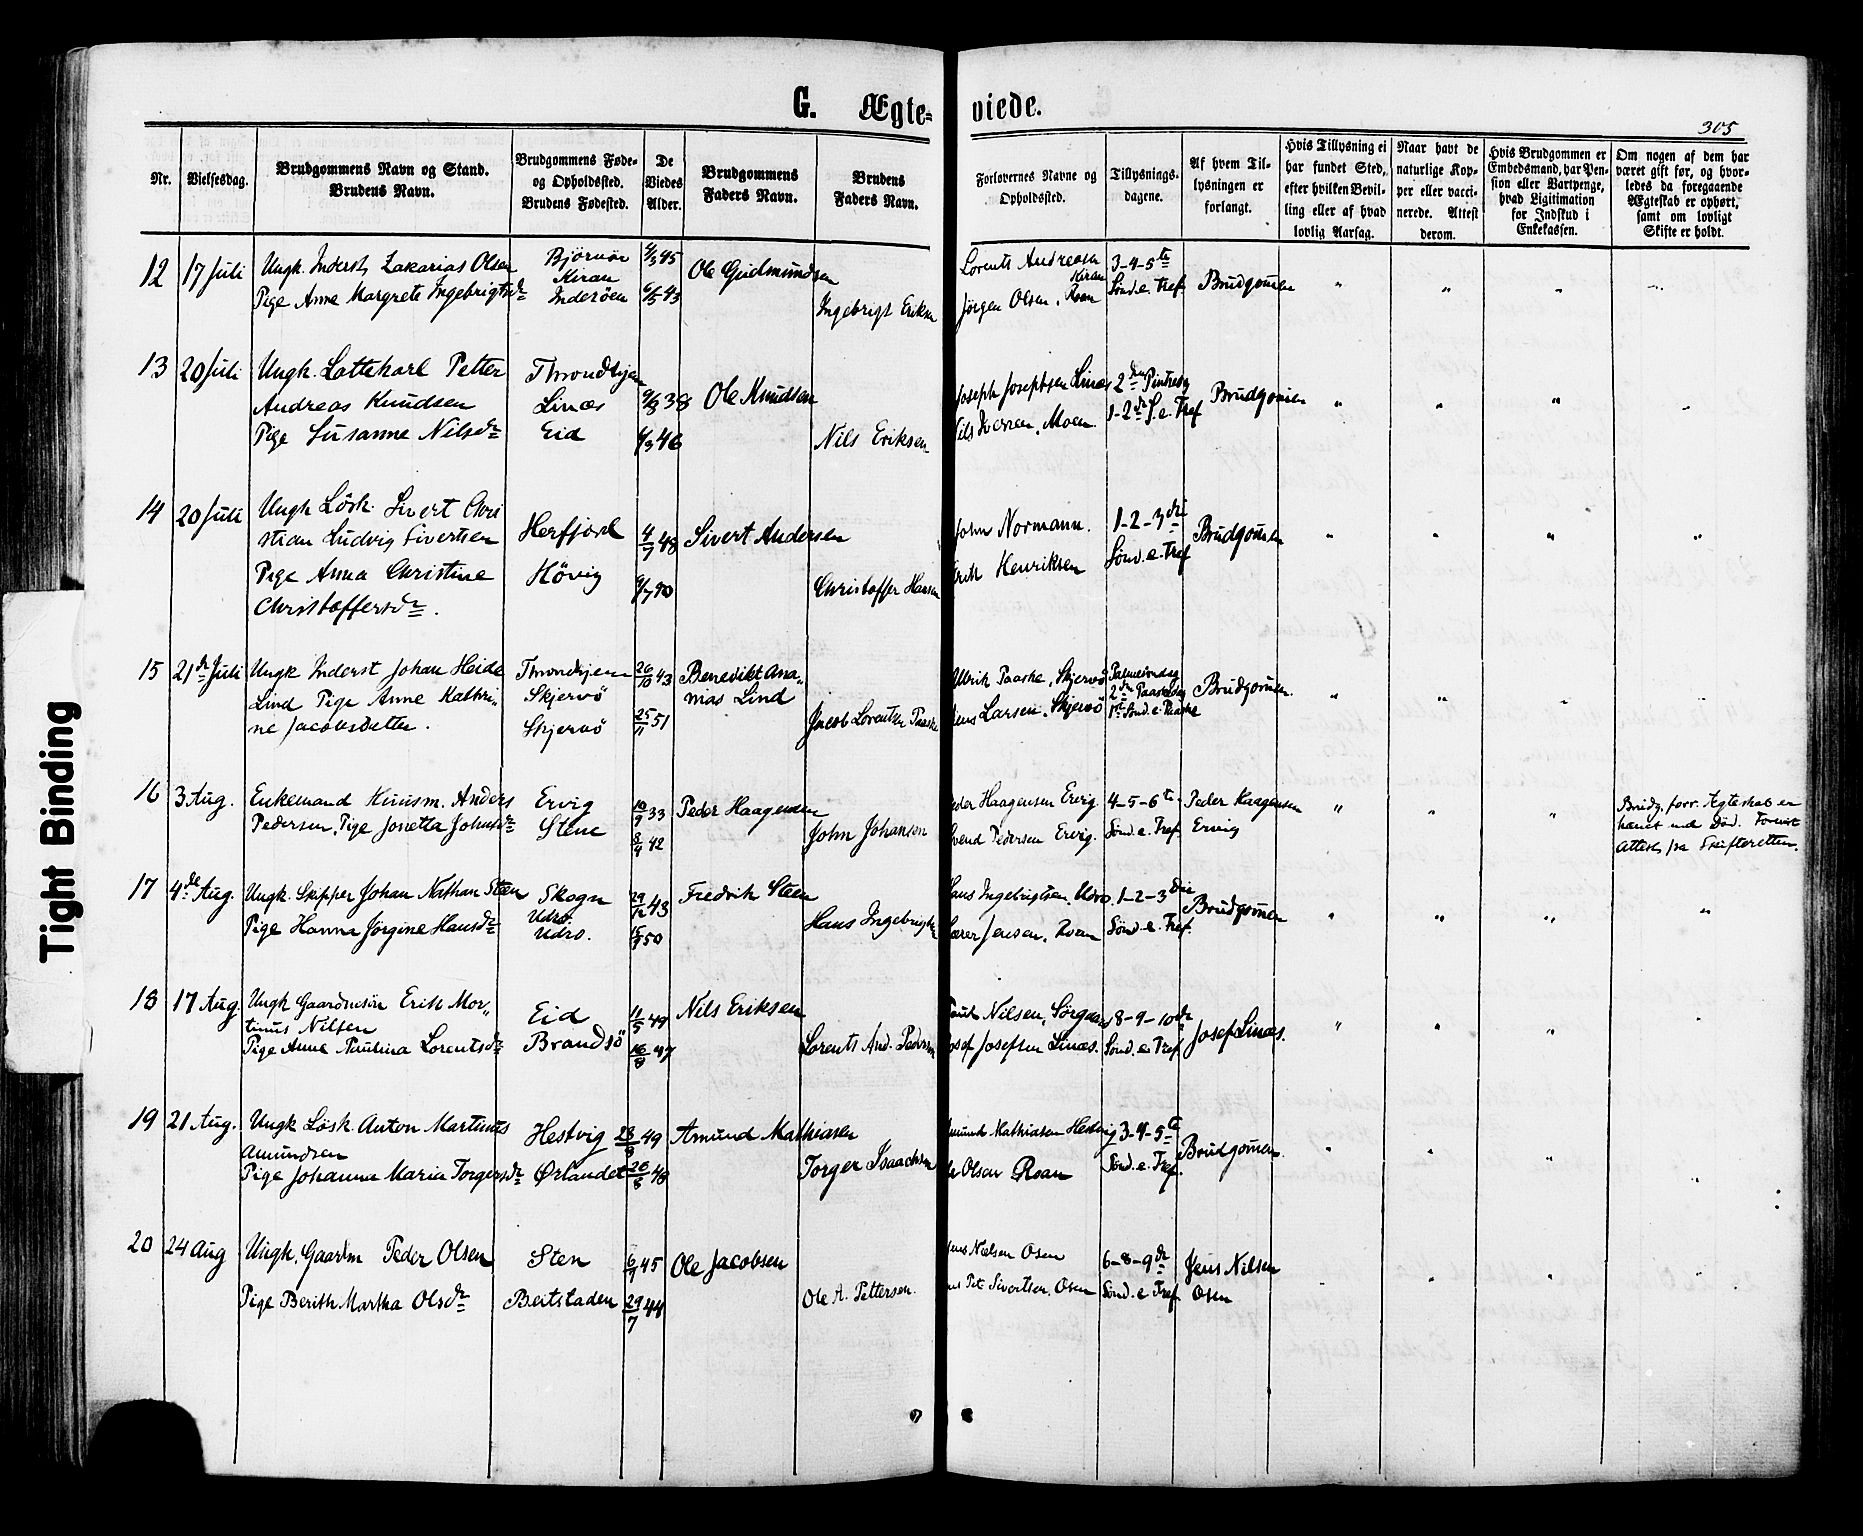 G. Ægte-
viede.
305
Nr.
Vielsesdag.
Brudgommens Navn og Stand.
Brudens Navn.
Brudgommens Føde-
og Opholdssted.
Brudens Fødested.
De
Viedes
Alder.
Brudgommens
Faders Navn.
Brudens
Faders Navn.
Forlovernes Navne og
Opholdssted.
Tillysnings-
dagene.
Af hvem Til-
lysningen er
forlangt.
Hvis Tillysning ei
har fundet Sted,
efter hvilken Bevil-
ling eller af hvad
lovlig Aarsag.
Naar havt de
naturlige Kop-
per eller vacci-
nerede. Attest
derom.
Hvis Brudgommen er
Embedsmand, har Pen-
sion eller Vartpenge,
hvad Ligitimation
for Indskud i
Enkekassen.
Om nogen af dem har
været gift før, og hvor-
ledes da foregaaende
Ægteskab er ophørt,
samt om lovligt
Skifte er holdt.
12 17 Juli
Ungk. Inderst, Zakarias Olsen
Pige Anne Margrete Ingebrigtsdr
Bjørnør
Kiran
Inderøen
4/3 45
6/5 43
Ole Gudmundsen
Ingebrigt Eriksen
Lorents Andreasen
Kiran
Jørgen Olsen, Roan
3-4-5te
Sønd. e. Tref.
Brudgomen
13 20 Juli
Ungk. Lottekarl Petter
Andreas Knudsen
Pige Susanne Nilsdr
Throndhjem
Linæs
Eid
9/8 38
4/3 46
Ole Knudsen
Nils Eriksen
Joseph Josephsen Linæs
Nils Iversen, Moen.
2den Pintsedg
1-2den S. e. Tref
Brudgomen
14 20 Juli
Ungk Løsk. Sivert Chri
stian Ludvig Sivertsen
Pige Anna Christine
Christoffersdr.
Herfjord
Høvig
4/7 48
Sivert Andersen
Christoffer Hansen
John Normann.
Erik Henriksen
1-2-3die
Sønd. e. Tref
Brudgomen
15 21de Juli
Ungk Inderst Johan Heide
Lind Pige Anne Kathri-
ne Jacobsdatter.
Throndhjem
Skjervø
Skjervø
26/10 43
25/11 51
Benedikt Ana-
nias Lind
Jacob Lorentzen Paaske
Ulrik Paaske, Skjervø
Jens Larsen, Skjervø
Palmesøndag
2den Paaskedag
1ste Sønd. e. Paaske
Brudgomen.
16 3 Aug.
Enkemand Huusm. Anders
Pedersen, Pige Jonetta Johnsdr
Ervig
Stene
10/9 33
8/4 42
Peder Haagensen
John Johanson
Peder Haagensen Ervig
Svend Pedersen Ervig.
4-5-6te
Sønd. e. Tref.
Peder Haagensen
Ervig
Brudg. forr. Ægteskab er
hævet ved Død. Forevist
Attest fra Skifteretten.
17 4de Aug.
Ungk. Skipper Johan Nathan Steen
Pige Hanna Jørgine Hansdr
Skogn
Udrø.
Udrø.
29/12 43
15/9 50
Fredrik Steen
Hans Ingebrigtsen
Hans Ingebrigtsen, Udrø
Sører Jensen, Roan
1-2-3die
Sønd. e. Tref.
Brudgomen
18 17 Aug.
Ungk Gaardmsøn Erik Mor-
tinus Nilsen
Pige Anne Paulina Lorentsdr
Eid
Brandsø
11/5 49
16/8 47
Nils Eriksen
Lorents And. Pedersen
Paul Nilsen, Sørgaard
Josef Josefsen Linæs.
8-9-10de
Sønd. e. Tref
Josef Linæs.
19 21 Aug.
Ungk Løsk. Anton Martinus
Amundsen
Pige Johanna Maria Torgersdr
Hestvig
Ørlandet
28/8 49
20/8 48
Amund Mathiasen
Torger Isaachsen
Amund Mathiasen Hestvig
Ole Olsen Roan
3-4-5te
Sønd. e. Tref.
Brudgomen.
20 24 Aug
Ungk. Gaardm Peder Olsen
Pige Berith Martha Olsdr
Sten
Beitstaden
6/9 45
29/7 44
Ole Jacobsen
Ole A. Pettersen.
Jens Nielsen Osen
Jens Pet. Sivertsen, Osen
6-8-9de
Sønd. e. Tref
Jens Nilsen
Osen
Tight Binding